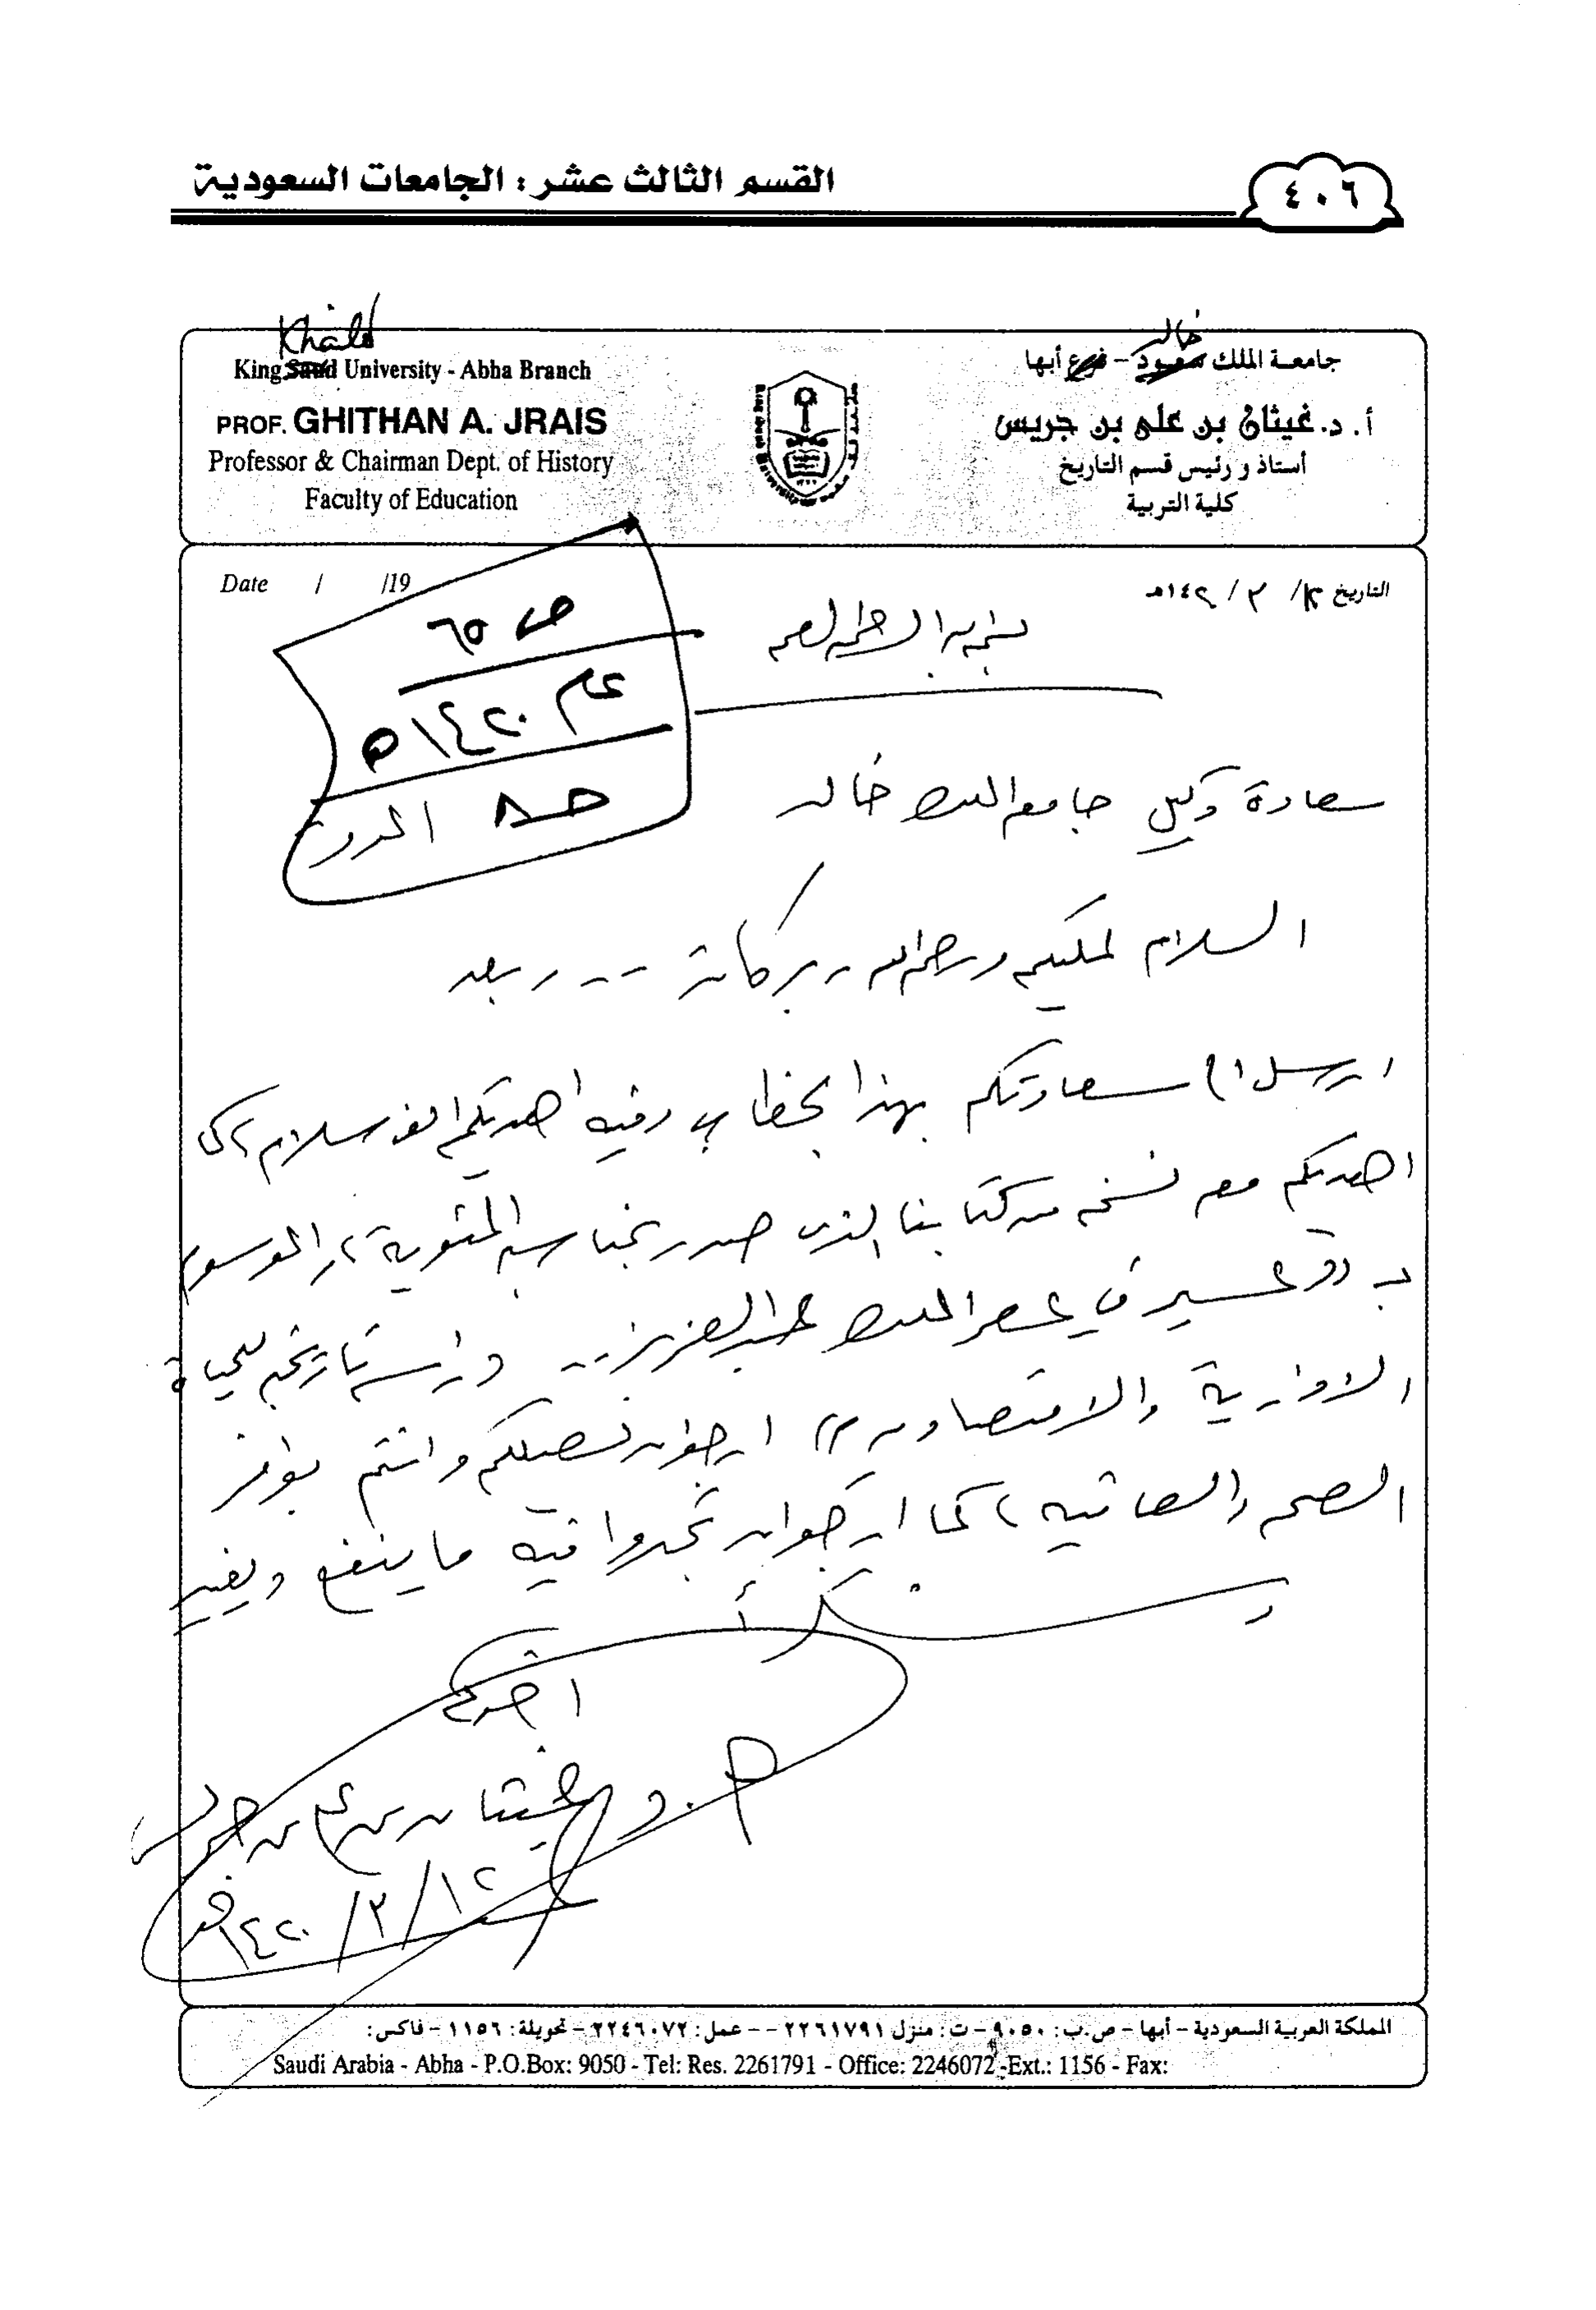 القسم الثالث عشر: الجامعات السعودية
٤٠٦
Khaild
King Saud University - Abha Branch
PROF. GHITHAN A. JRAIS
Professor & Chairman Dept. of History
Faculty of Education
خالد
جامعة الملك سعود - فرع أبها
أ. د. غيثان بن علي بن جريس
أستاذ و رئيس قسم التاريخ
كلية التربية
Date / /19
التاريخ / ٣ / ١٤٢هـ
ص ٦٥
عام ١٤٢٠هـ
بسم الله الرحمن الرحيم
سعادة وكيل جامعة الملك خالد
السلام عليكم ورحمة الله وبركاته -- وبعد
ارسل الى سعادتكم بهذا الخطاب وفيه اهديكم الف سلام، كما
اهديكم معه نسخه من كتابنا الذي صدر بمناسبة المئوية، والموسوم
بـ ((عسير في عصر الملك عبدالعزيز -- دراسة تاريخية للحياة
الادارية والاقتصادية)) ارجو ان تصلكم وانتم بوافر
الصحة والعافيه، كما ارجو ان تجدوا فيه ما ينفع ويفيد
اخوكم
أ. د غيثان بن علي بن جريس
١٢/٣/١٤٢٠هـ
المملكة العربية السعودية - أبها - ص.ب: ٩٠٥٠ - ت: منزل ٢٢٦١٧٩١ -- عمل: ٢٢٤٦٠٧٢ - تحويلة: ١١٥٦ - فاكس:
Saudi Arabia - Abha - P.O.Box: 9050 - Tel: Res. 2261791 - Office: 2246072 -Ext.: 1156 - Fax: